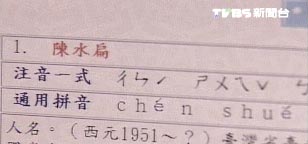 TVBS新聞台
1. 陳水扁
注音一式 ㄔㄣˊ ㄕㄨㄟˇ ㄅ
通用拼音 chén shuě
人名。(西元1951~?)臺灣省臺